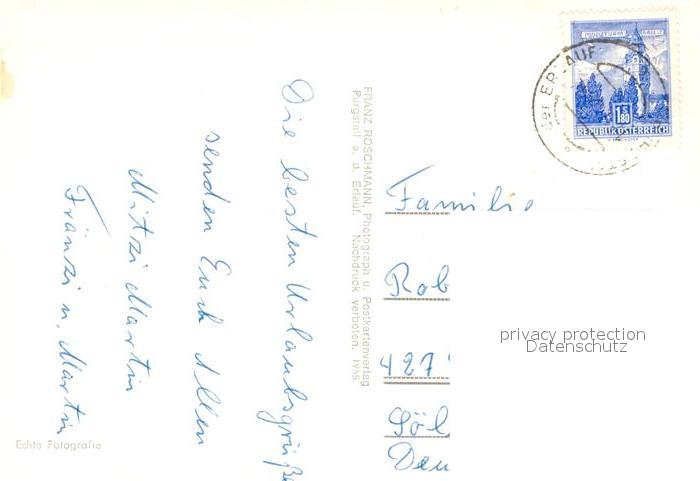 Die besten Urlaubsgrüße
senden Euch Allen
Mitzi Martin
Fränzi u. Martin
Echte Fotografie
FRANZ ROSCHMANN, Photograph u. Postkartenverlag
Purgstall a. d. Erlauf. Nachdruck verboten. 1965
MÜNZTURM HALL
S 1.80
REPUBLIK ÖSTERREICH
ERLAUF
Familie
Rob
427
Söl
Deu
privacy protection
Datenschutz